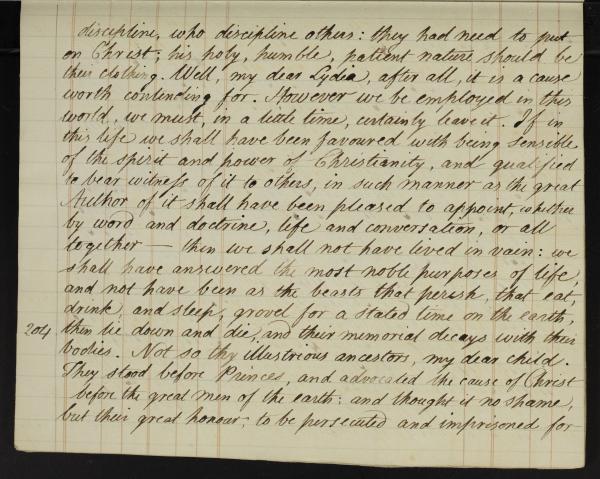 discipline, who discipline others: they had need to put
on Christ; his holy, humble, patient nature should be
their clothing. Well, my dear Lydia, after all, it is a cause
worth contending for. However we be employed in this
world, we must, in a little time, certainly leave it. If in
this life we shall have been favoured with being sensible
of the spirit and power of Christianity, and qualified
to bear witness of it to others, in such manner as the great
Author of it shall have been pleased to appoint, whether
by word and doctrine, life and conversation, or all
together — then we shall not have lived in vain: we
shall have answered the most noble purposes of life,
and not have been as the beasts that perish, that eat,
drink, and sleep, grovel for a stated time on the earth,
204 then lie down and die, and their memorial decays with their
bodies. Not so thy illustrious ancestors, my dear child.
They stood before Princes, and advocated the cause of Christ
before the great men of the earth: and thought it no shame,
but their great honour, to be persecuted and imprisoned for